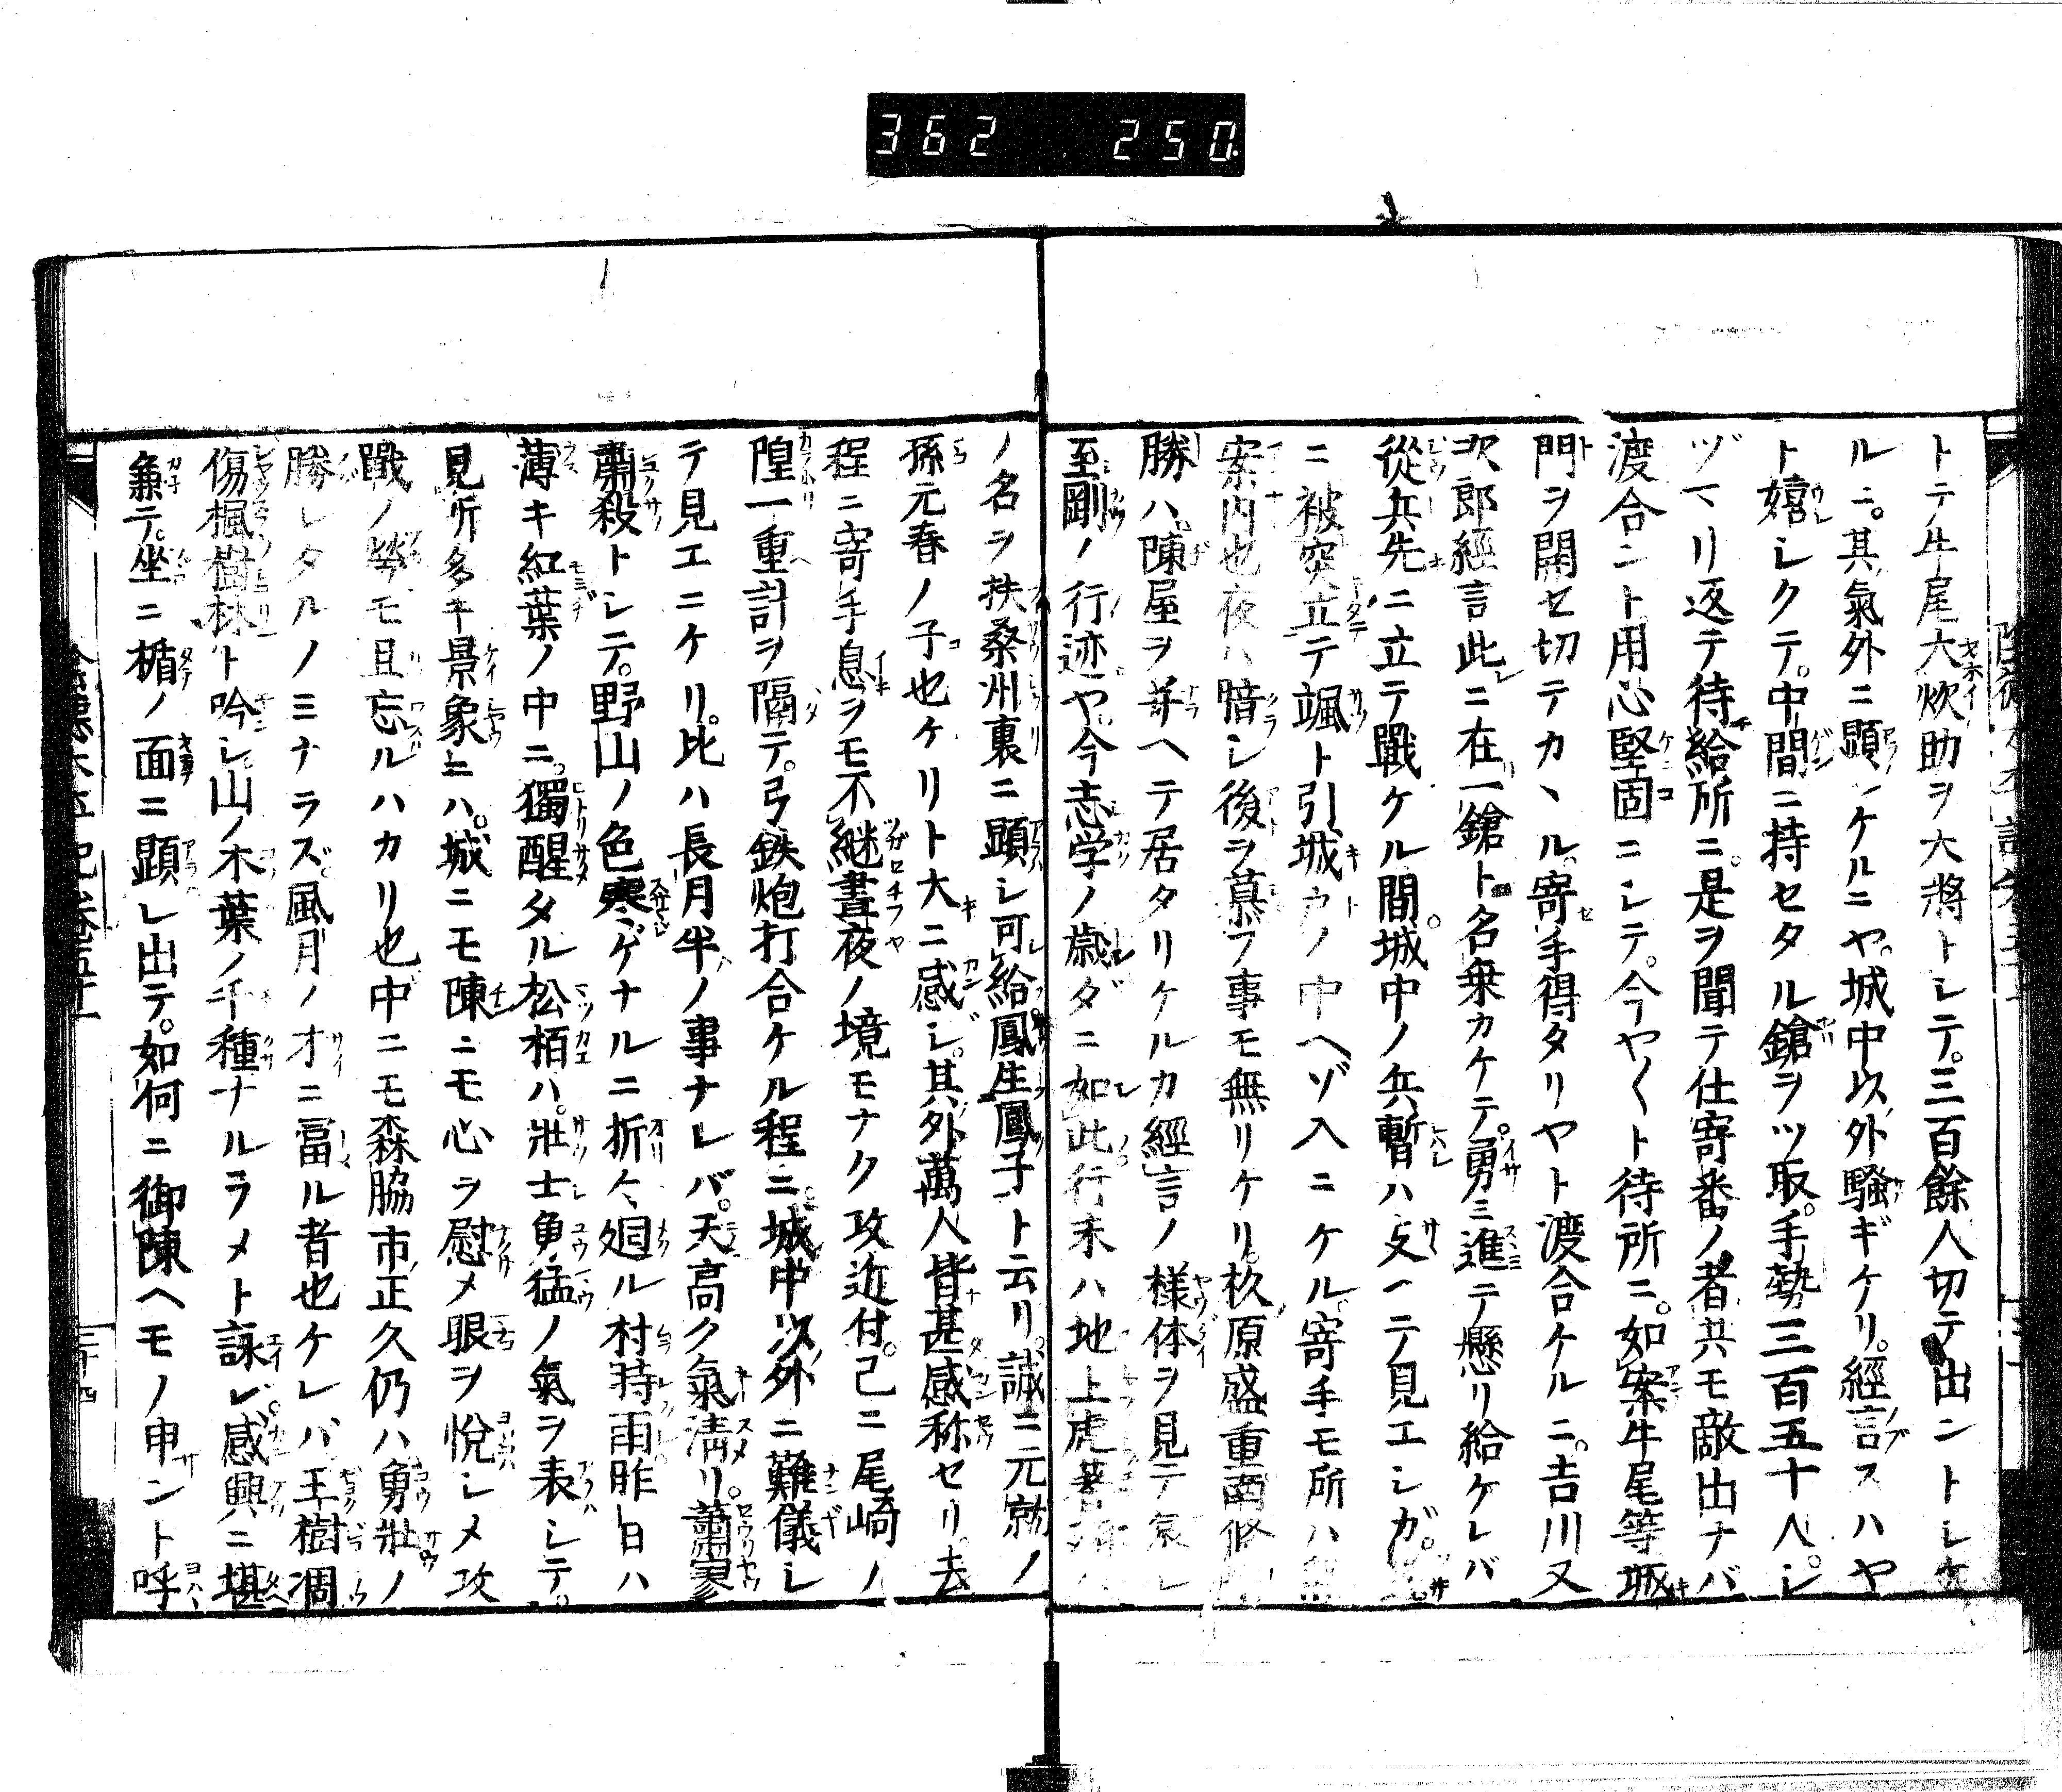 362 250
トテ牛尾大炊助ヲ大将トシテ。三百餘人切テ出ントシケ
ルニ。其氣外ニ顕ハケルニヤ。城中以外騒ギケリ。經言スハヤ
ト嬉シクテ。中間ニ持セタル鎗ヲツ取。手勢三百五十人。シ
ヅマリ返テ待給所ニ。是ヲ聞テ仕寄番ノ者共モ敵出ナバ
渡合ント用心堅固ニシテ。今ヤ〱ト待所ニ。如案牛尾等城
門ヲ開セ切テカヽル。寄手得タリヤト渡合ケルニ。吉川又
次郎經言此ニ在一鎗ト名乗カケテ。勇ミ進テ懸リ給ケレバ
從兵先ニ立テ戰ケル間。城中ノ兵暫ハ支ヘテ見エシガ。
ニ被突立テ颯ト引城戸ノ中ヘゾ入ニケル。寄手モ所ハ
案内也夜ハ暗シ後ヲ慕フ事モ無リケリ。杦原盛重
勝ハ。陳屋ヲ并ヘテ居タリケルカ經言ノ様体ヲ見テ
至剛ノ行迹ヤ。今志学ノ歳ダニ如此行末ハ地上虎
ノ名ヲ扶桑州裏ニ顕シ可給鳳生鳳子ト云リ。誠ニ元就ノ
孫元春ノ子也ケリト大ニ感ジ。其外萬人皆甚感称セリ。去
程ニ寄手息ヲモ不継晝夜ノ境モナク攻近付。己ニ尾崎ノ
隍一重計ヲ隔テ。弓鉄炮打合ケル程ニ。城中以外ニ難儀シ
テ見エニケリ。比ハ長月半ノ事ナレバ。天高ク氣清リ。蕭寥
肅殺トシテ。野山ノ色寒ゲナルニ折々廻ル村時雨昨日ハ
薄キ紅葉ノ中ニ。獨醒タル松栢ハ。壮士勇猛ノ氣ヲ表シテ。
見所多キ景象ニハ。城ニモ陳ニモ心ヲ慰メ眼ヲ悦シメ攻
戰ノ労モ且忘ルハカリ也中ニモ森脇市正久仍ハ勇壮ノ
勝レタルノミナラズ。風月ノオニ冨ル者也ケレバ玉樹凋
傷楓樹林ト吟シ山ノ木葉ノ千種ナルラメト詠ジ感興ニ堪
兼テ。坐ニ楯ノ面ニ顕レ出テ。如何ニ御陳ヘモノ申ント呼